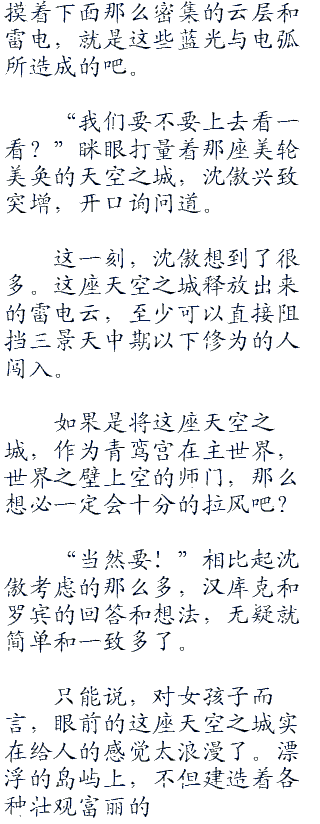 摸着下面那么密集的云层和
雷电，就是这些蓝光与电弧
所造成的吧。
“我们要不要上去看一
看？”眯眼打量着那座美轮
美奂的天空之城，沈傲兴致
突增，开口询问道。
这一刻，沈傲想到了很
多。这座天空之城释放出来
的雷电云，至少可以直接阻
挡三景天中期以下修为的人
闯入。
如果是将这座天空之
城，作为青鸾宫在主世界，
世界之壁上空的师门，那么
想必一定会十分的拉风吧？
“当然要！”相比起沈
傲考虑的那么多，汉库克和
罗宾的回答和想法，无疑就
简单和一致多了。
只能说，对女孩子而
言，眼前的这座天空之城实
在给人的感觉太浪漫了。漂
浮的岛屿上，不但建造着各
种壮观富丽的